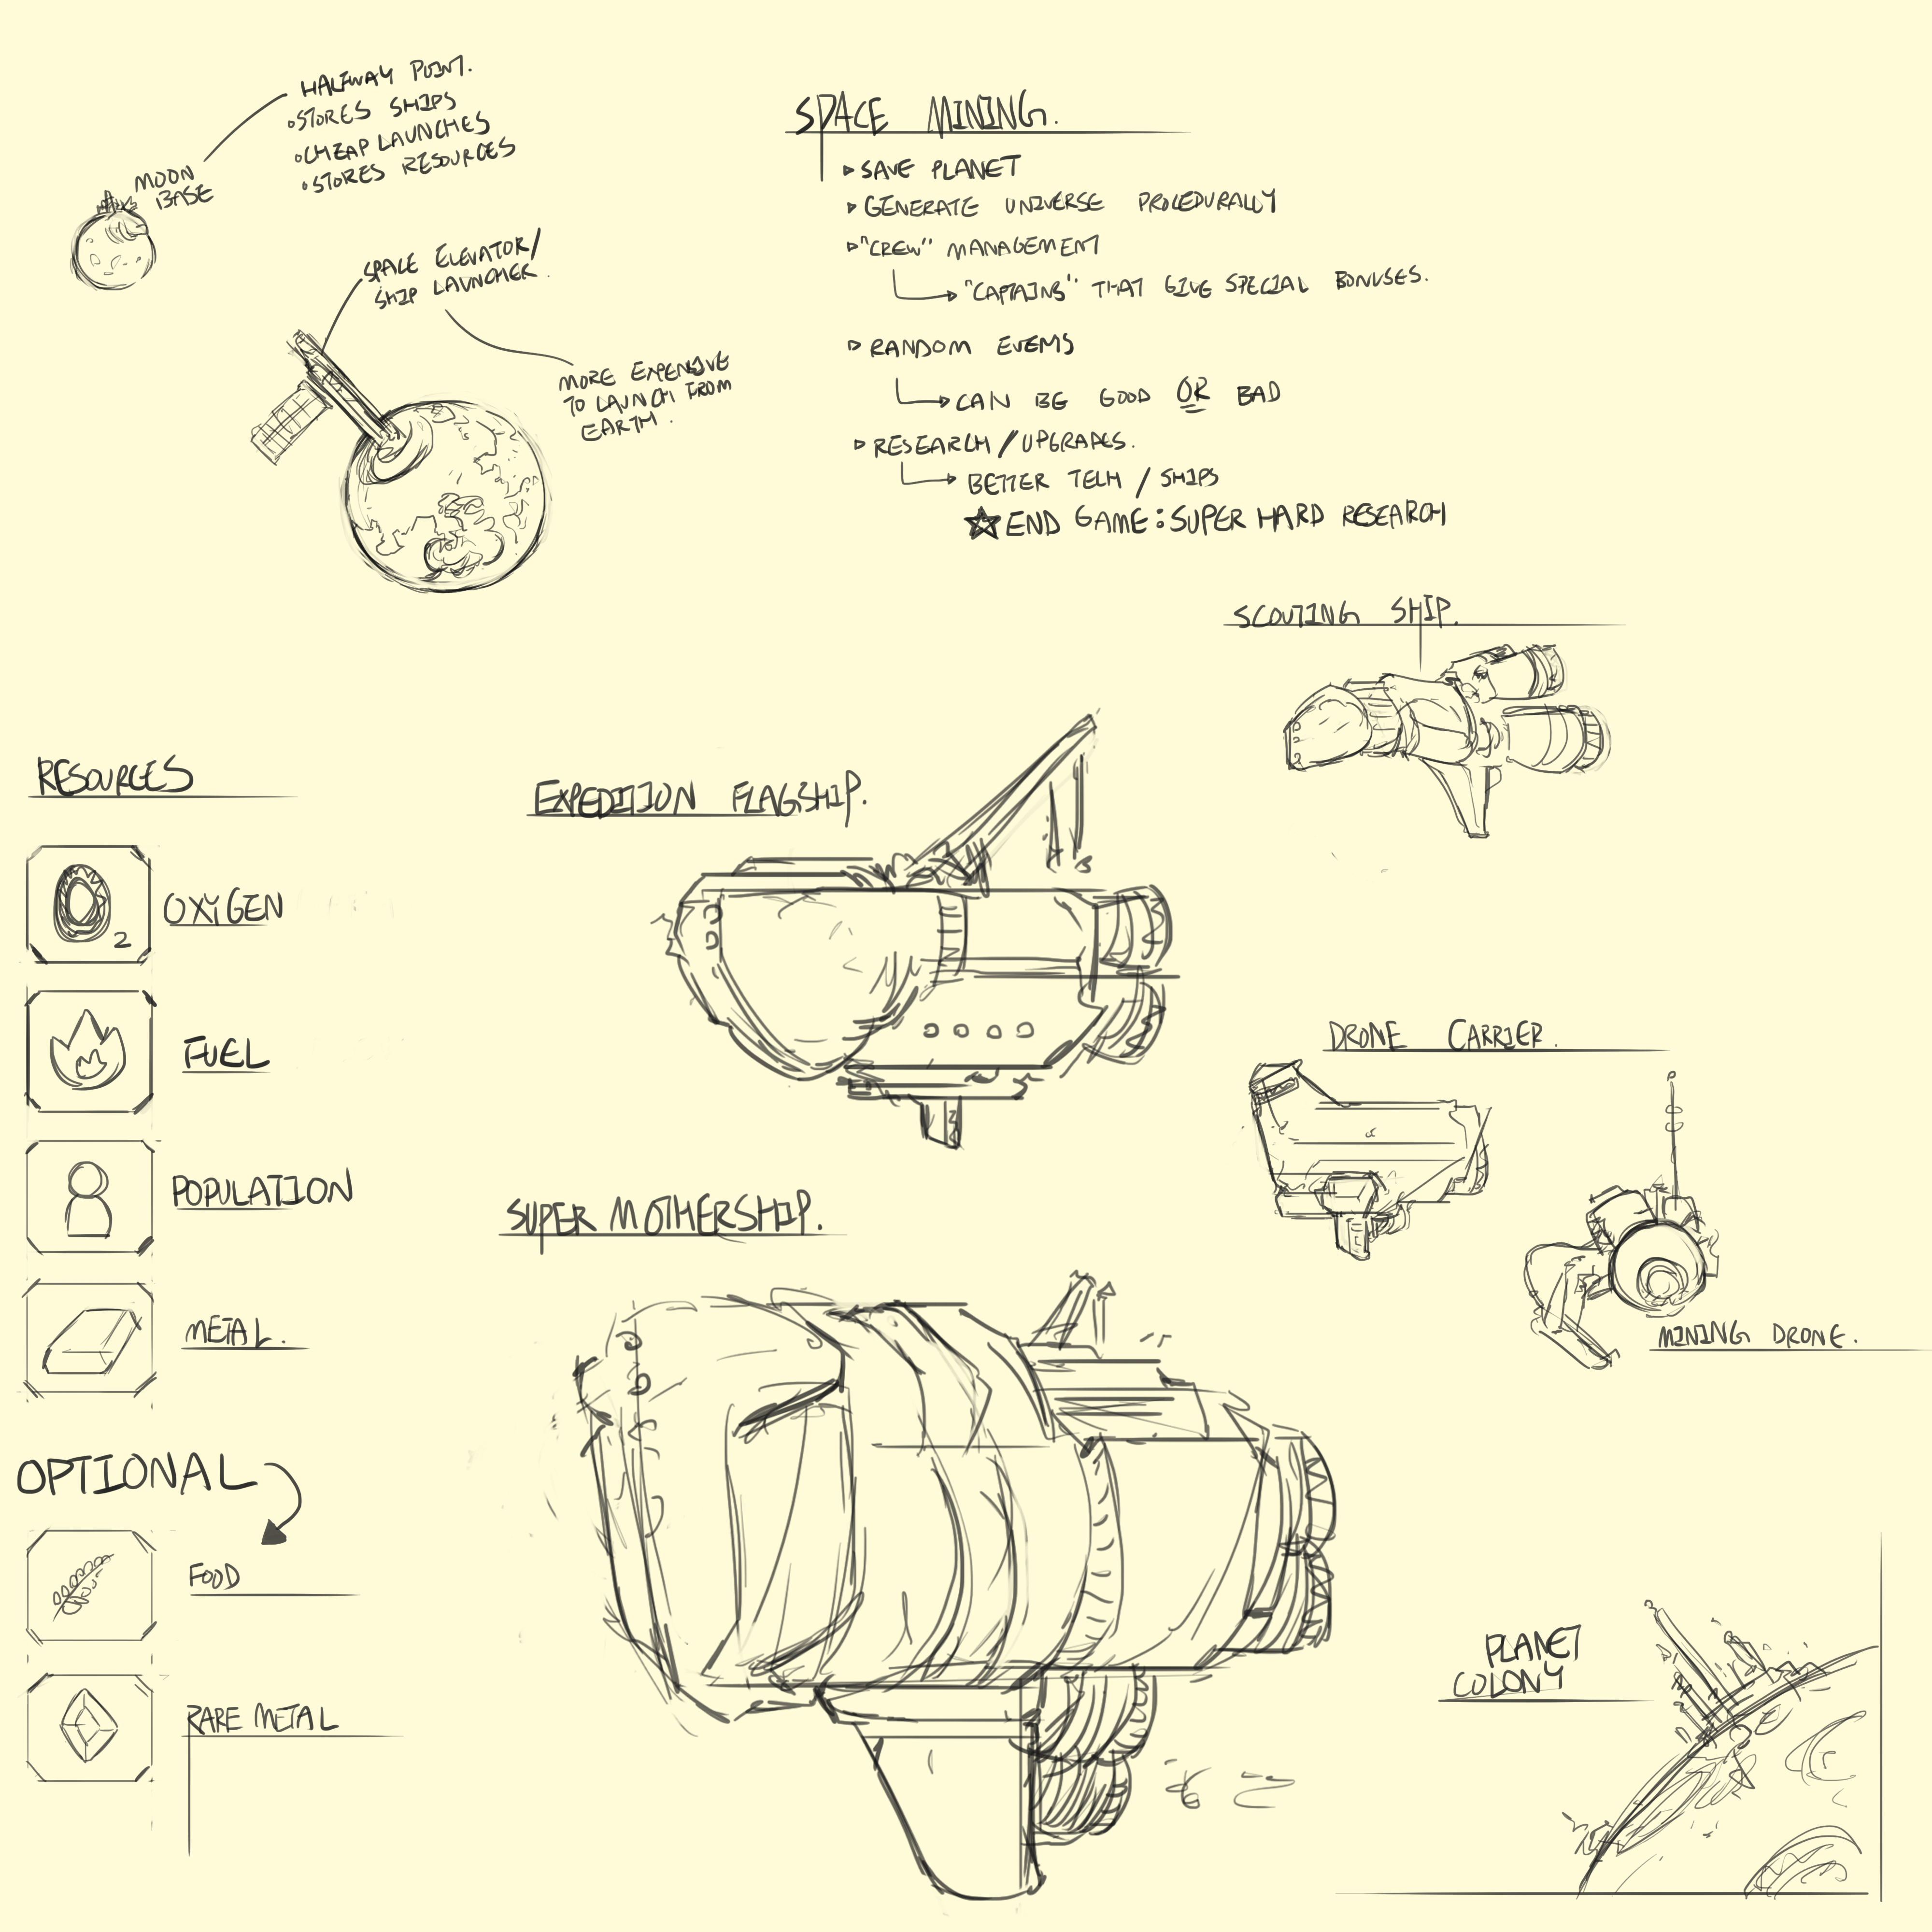 HALFWAY POINT.
•STORES SHIPS
•CHEAP LAUNCHES
•STORES RESOURCES
MOON
BASE
SPACE ELEVATOR/
SHIP LAUNCHER.
MORE EXPENSIVE
TO LAUNCH FROM
EARTH.
SPACE MINING.
▹SAVE PLANET
▹GENERATE UNIVERSE PROCEDURALLY
▹"CREW" MANAGEMENT
"CAPTAINS" THAT GIVE SPECIAL BONUSES.
▹RANDOM EVENTS
CAN BE GOOD OR BAD
▹RESEARCH/UPGRADES.
BETTER TECH / SHIPS
☆END GAME: SUPER HARD RESEARCH
SCOUTING SHIP.
RESOURCES
2
OXYGEN
FUEL
POPULATION
METAL.
OPTIONAL
FOOD
RARE METAL
EXPEDITION FLAGSHIP.
DRONE CARRIER.
MINING DRONE.
SUPER MOTHERSHIP.
PLANET
COLONY